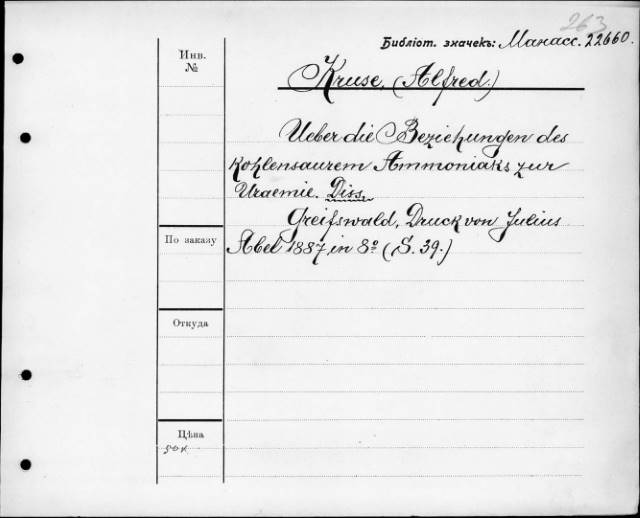 263
Библіот. значекъ: Манасс. 22660.
Инв.
№
Kruse, (Alfred.)
Ueber die Beziehungen des
Kohlensaurem Ammoniaks zur
Uraemie. Diss.
Greifswald, Druck von Julius
Abel 1887, in 8º (S. 39.)
По заказу
Откуда
Цѣна
50к